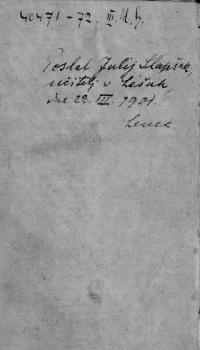 40471-72. III. M. h.
Poslal Julij Slapšak,
učitelj v Lešah
dne 22. III. 1921.
Levec.